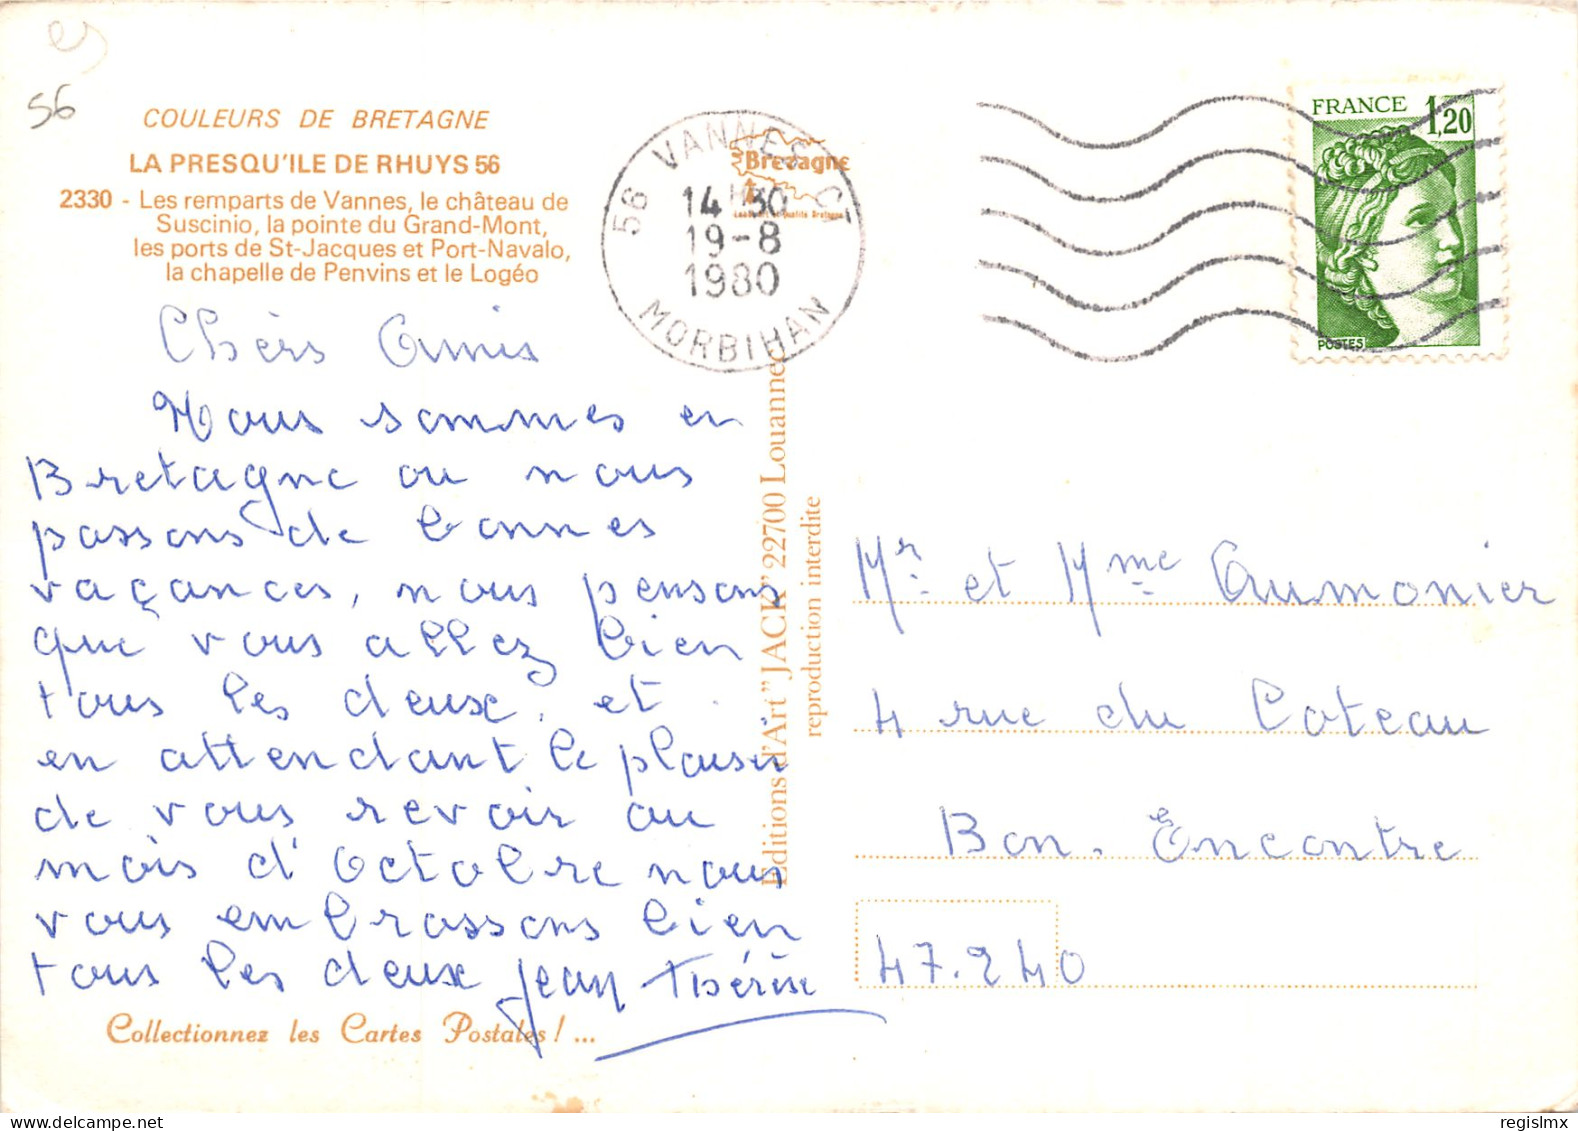 56
COULEURS DE BRETAGNE
LA PRESQU'ILE DE RHUYS 56
2330 - Les remparts de Vannes, le château de
Suscinio, la pointe du Grand-Mont,
les ports de St-Jacques et Port-Navalo,
la chapelle de Penvins et le Logéo
Chèrs Amis
Nous sommes en
Bretagne ou nous
passons de bonnes
vaçances, nous pensons
que vous allez bien
tous les deux, et
en attendant le plaisir
de vous revoir au
mois d'octobre nous
vous embrassons bien
tous les deux Jean Thérèse
Collectionnez les Cartes Postales ! ...
56 VANNES CT
14 H 30
19-8
1980
MORBIHAN
Bretagne
Editions d'Art "JACK" 22700 Louannec
reproduction interdite
FRANCE 1,20
POSTES
Mr. et Mme Aumonier
4 rue du Coteau
Bon-Encontre
47.240
delcampe.net
regislmx